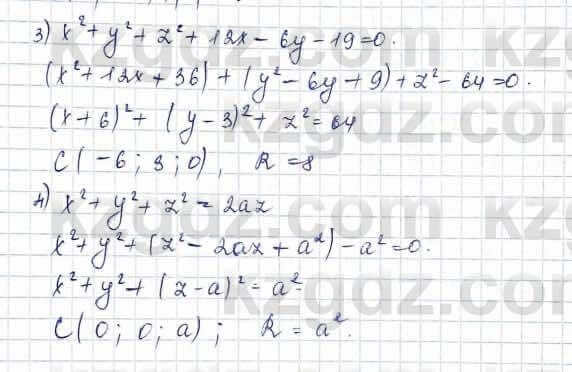 3) x² + y² + z² + 12x - 6y - 19 = 0.
(x² + 12x + 36) + (y² - 6y + 9) + z² - 64 = 0.
(x + 6)² + (y - 3)² + z² = 64
C(-6; 3; 0), R = 8
4) x² + y² + z² = 2az
x² + y² + (z² - 2az + a²) - a² = 0.
x² + y² + (z - a)² = a².
C(0; 0; a); R = a².
kzgdz.com